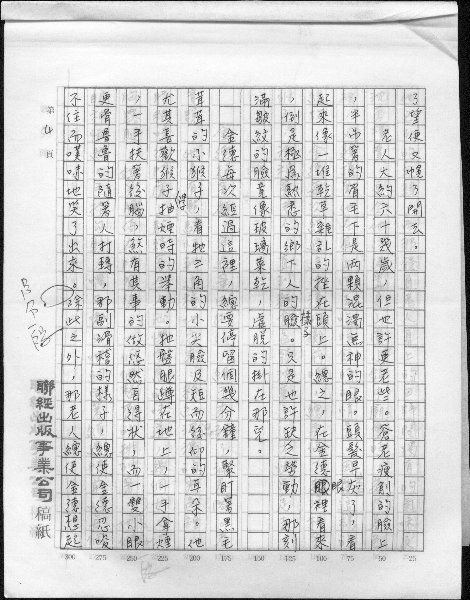 了望便又慢了開去。
老人大約六十幾歲，但也許更老些。蒼老瘦削的臉上
，半白著的眉毛下是兩顆混濁無神的眼。頭髮早灰了，看
起來像一堆乾草雜亂的拴在頭上。總之，在金德眼裡看來
，倒是極為熟悉的鄉下人的臉樣子。又是也許缺乏勞動，那刻
滿皺紋的臉竟像玻璃菓乾，虛脫的掛在那兒。
金德每次經過這裡，總要停留個幾分鐘，緊盯著黑毛
茸茸的小猴子，看牠三角的小尖臉及短而後仰的耳朵。他
尤其喜歡猴子學抽煙時的舉動。牠瞪眼蹲在地上，一手拿煙
，一手扶著後腦，煞有其事的做悠然自得狀，而一雙小眼
更骨魯魯的隨著人打轉，那副滑稽的樣子，總使金德忍唆
不住而噗哧地笑了出來。除此之外，那老人總使金德想起
第4頁
聯經出版事業公司稿紙
25
50
75
100
125
150
175
200
225
250
275
300